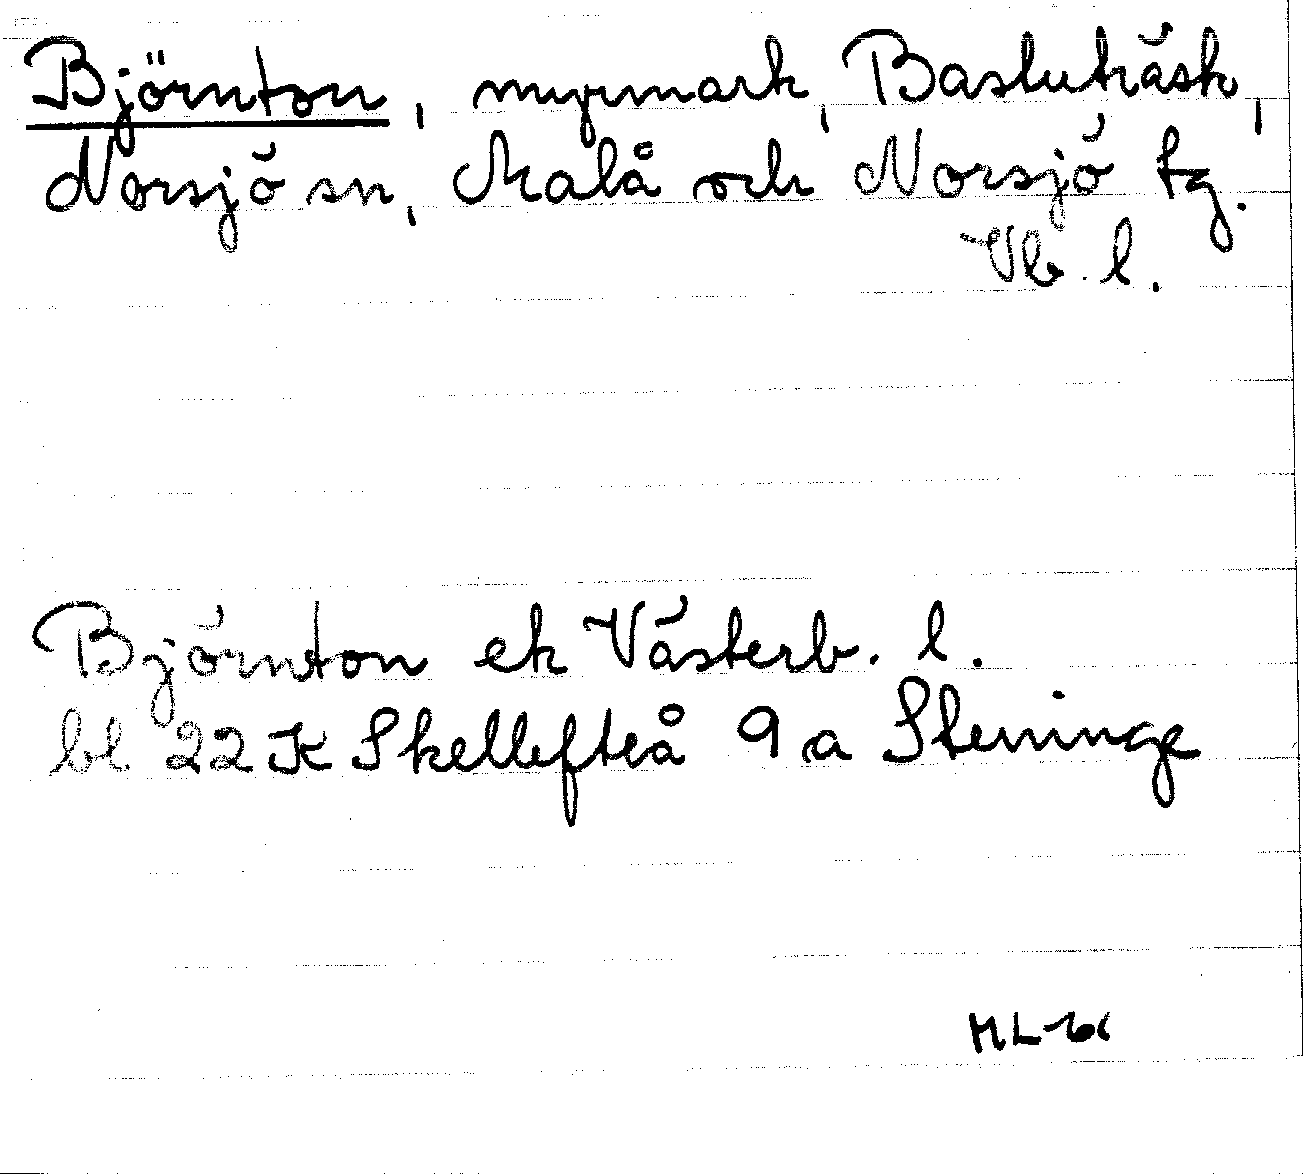 Björnton, myrmark, Bastuträsk,
Norsjö sn, Malå och Norsjö tg.
Vb. l.
Björnton ek Västerb. l.
bl 22 K Skellefteå 9 a Steninge